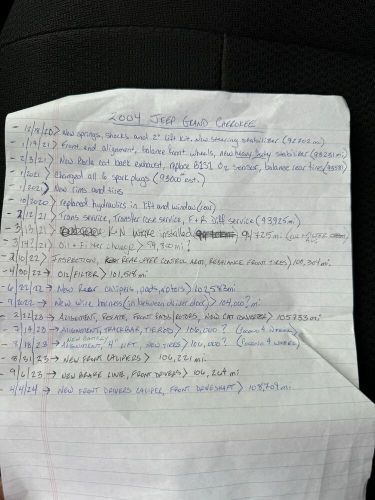 2004 JEEP GRAND CHEROKEE
- 12/18/20 > New springs, shocks and 2" lift kit. New steering stabilizer (92702 mi)
- 1/19/21 > Front end alignment, balance front wheels, new heavy duty stabilizer (93231 mi)
- 2/5/21 > New Borla cat back exhaust, replace B1S1 O2 sensor, balance rear tires
- 1/2021 > Changed all 6 spark plugs (93000 est.)
- 1/2021 > New rims and tires
- 10/2020 > replaced hydraulics in lift and window
- 2/12/21 > Trans service, Transfer case service, F+R diff service (93925 mi)
- 3/13/21 > K-N intake installed 94725 mi.
- 21 > OIL + FILTER CHANGE > 94,310 mi?
- 2/10/22 > INSPECTION, REAR UPPER CONTROL ARM, REBALANCE FRONT TIRES > 100,304 mi.
- 4/20/22 → OIL/FILTER > 101,518 mi
- 6/22/22 → New Rear calipers, pads, rotors > 102,583 mi
- 9/2022 → New wire harness (in between driver door) > 104,000? mi
- 2/22/23 → ALIGNMENT, ROTATE, FRONT PADS/ROTORS, NEW CAT CONVERTER > 105733 mi
- → ALIGNMENT, TRACK BAR, TIE RODS > 106,000? (4 WEEKS)
NEW BATTERY
- 23 → ALIGNMENT, 4" LIFT, NEW TIRES > 106,000? (4 WEEKS)
- 8/31/23 → NEW FRONT CALIPERS > 106,221 mi
- 9/6/23 → NEW BRAKE LINE, FRONT DRIVERS > 106,264 mi
- 4/4/24 → NEW FRONT DRIVERS CALIPER, FRONT DRIVESHAFT > 108,709 mi.